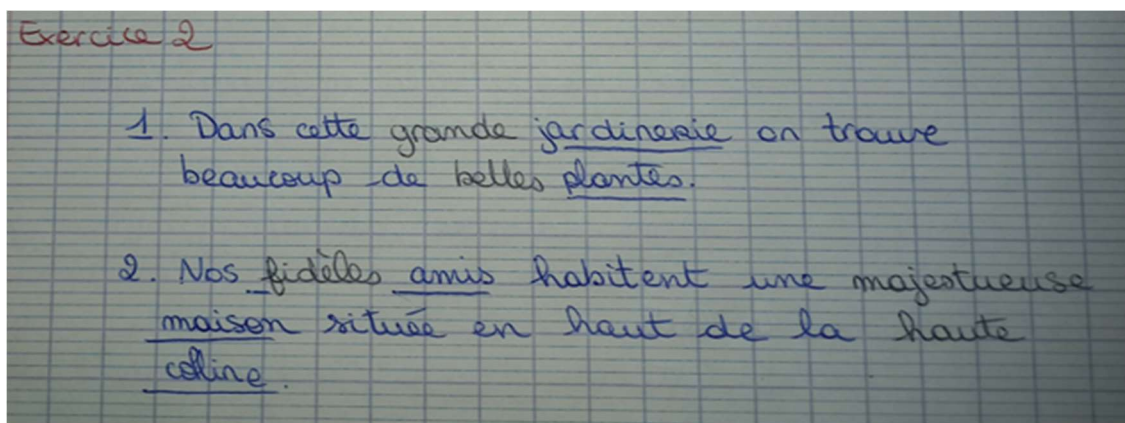 Exercice 2
1. Dans cette grande jardinerie on trouve
beaucoup de belles plantes.
2. Nos fidèles amis habitent une majestueuse
maison située en haut de la haute
colline.